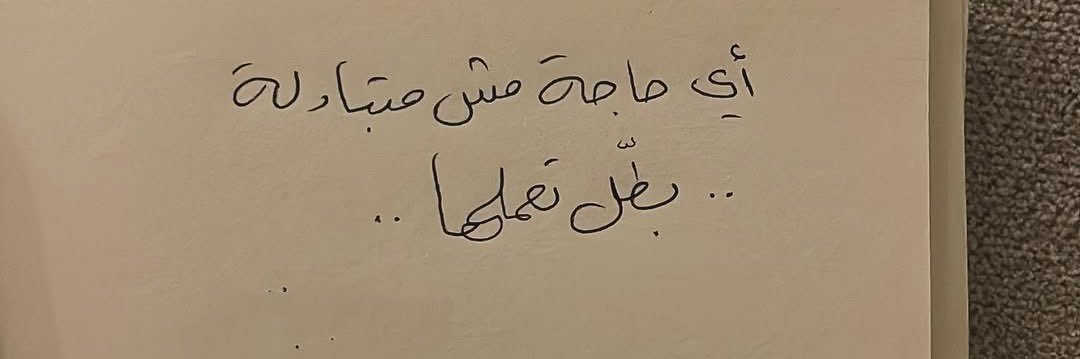 أي حاجة مش متبادلة
.. بطّل تعملها ..